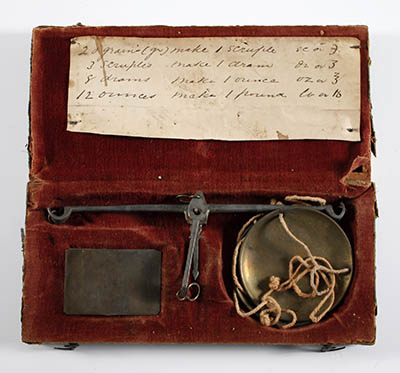 20 grains (gr) make 1 scruple sc or ℈
3 scruples make 1 dram dz or ʒ
8 drams make 1 ounce oz or ℥
12 ounces make 1 pound lb or ℔